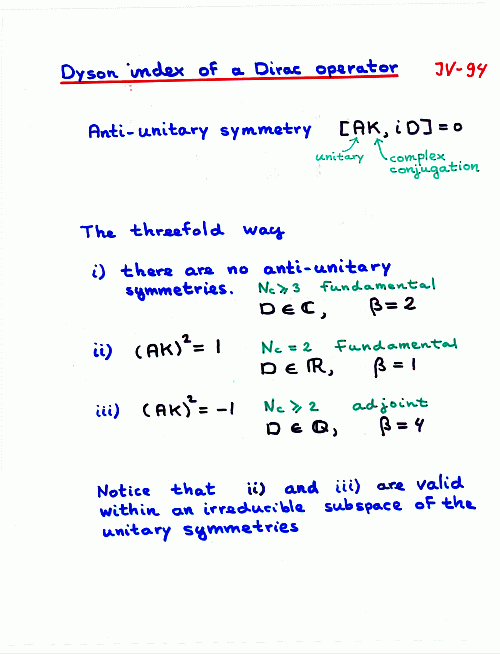 Dyson index of a Dirac operator JV-94
Anti-unitary symmetry [AK, iD] = 0
unitary complex
conjugation
The threefold way
i) there are no anti-unitary
symmetries. Nc ≥ 3 fundamental
D ∈ ℂ, β = 2
ii) (AK)² = 1 Nc = 2 fundamental
D ∈ ℝ, β = 1
iii) (AK)² = -1 Nc ≥ 2 adjoint
D ∈ ℚ, β = 4
Notice that ii) and iii) are valid
within an irreducible subspace of the
unitary symmetries